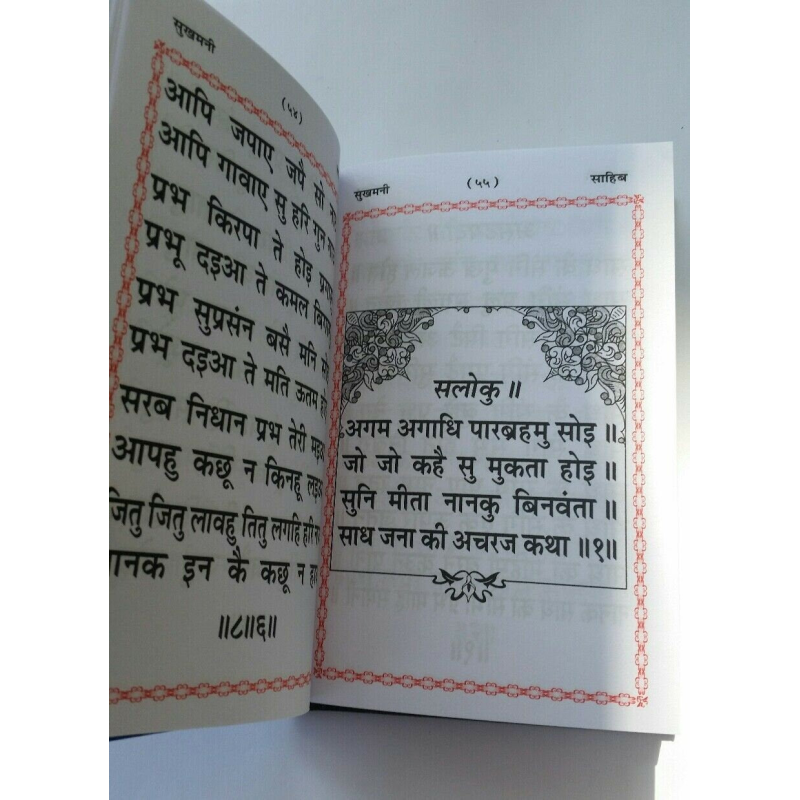 सुखमनी
(५४)
आपि जपाए जपै सो
आपि गावाए सु हरि गुन
प्रभ किरपा ते होइ
प्रभू दइआ ते कमल
प्रभ सुप्रसंन बसै मनि
प्रभ दइआ ते मति ऊतम
सरब निधान प्रभ तेरी
आपहु कछू न किनहू लइआ
जितु जितु लावहु तितु लगहि हरि
नानक इन कै कछू न
॥८॥६॥
सुखमनी (५५) साहिब
सलोकु ॥
अगम अगाधि पारब्रहमु सोइ ॥
जो जो कहै सु मुकता होइ ॥
सुनि मीता नानकु बिनवंता ॥
साध जना की अचरज कथा ॥१॥